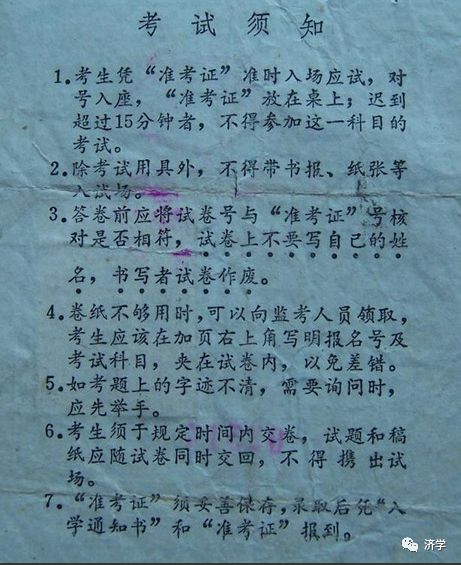 考试须知
1.考生凭“准考证”准时入场应试，对
号入座，“准考证”放在桌上；迟到
超过15分钟者，不得参加这一科目的
考试。
2.除考试用具外，不得带书报、纸张等
入试场。
3.答卷前应将试卷号与“准考证”号核
对是否相符，试卷上不要写自己的姓
名，书写者试卷作废。
4.卷纸不够用时，可以向监考人员领取，
考生应该在加页右上角写明报名号及
考试科目，夹在试卷内，以免差错。
5.如考题上的字迹不清，需要询问时，
应先举手。
6.考生须于规定时间内交卷，试题和稿
纸应随试卷同时交回，不得携出试
场。
7.“准考证”须妥善保存，录取后凭“入
学通知书”和“准考证”报到。
济学